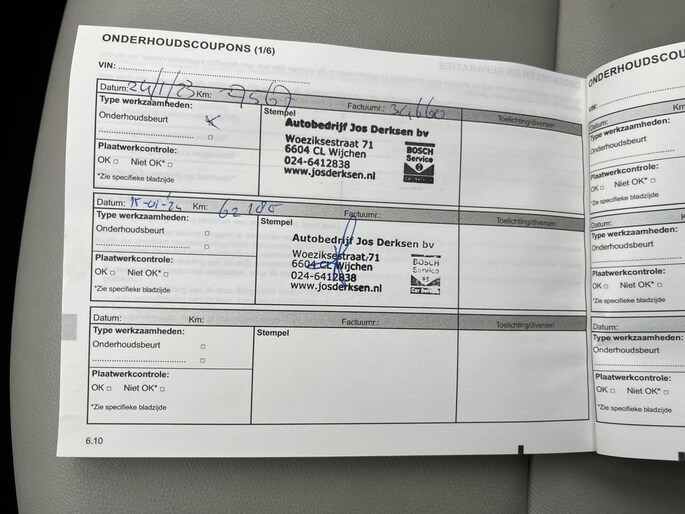 ONDERHOUDSCOUPONS (1/6)
VIN:
Datum: 24/1/23 Km:
Factuurnr.: 34660
Toelichting/diversen
Type werkzaamheden:
Onderhoudsbeurt
Stempel
Autobedrijf Jos Derksen bv
Woeziksestraat 71
6604 CL Wijchen
024-6412838
www.josderksen.nl
BOSCH
Service
Plaatwerkcontrole:
OK Niet OK*
*Zie specifieke bladzijde
Datum: 15-01-24 Km: 62186
Factuurnr.:
Toelichting/diversen
Type werkzaamheden:
Onderhoudsbeurt
Stempel
Autobedrijf Jos Derksen bv
Woeziksestraat 71
6604 CL Wijchen
024-6412838
www.josderksen.nl
BOSCH
Service
Car Service
Plaatwerkcontrole:
OK Niet OK*
*Zie specifieke bladzijde
Datum: Km:
Factuurnr.:
Toelichting/diversen
Type werkzaamheden:
Onderhoudsbeurt
Stempel
Plaatwerkcontrole:
OK Niet OK*
*Zie specifieke bladzijde
6.10
ONDERHOUDSCOU
VIN:
Datum: Km
Type werkzaamheden:
Onderhoudsbeurt
Plaatwerkcontrole:
OK Niet OK*
*Zie specifieke bladzijde
Datum: Km:
Type werkzaamheden:
Onderhoudsbeurt
Plaatwerkcontrole:
OK Niet OK*
*Zie specifieke bladzijde
Datum: Km:
Type werkzaamheden:
Onderhoudsbeurt
Plaatwerkcontrole:
OK Niet OK*
*Zie specifieke bladzijde